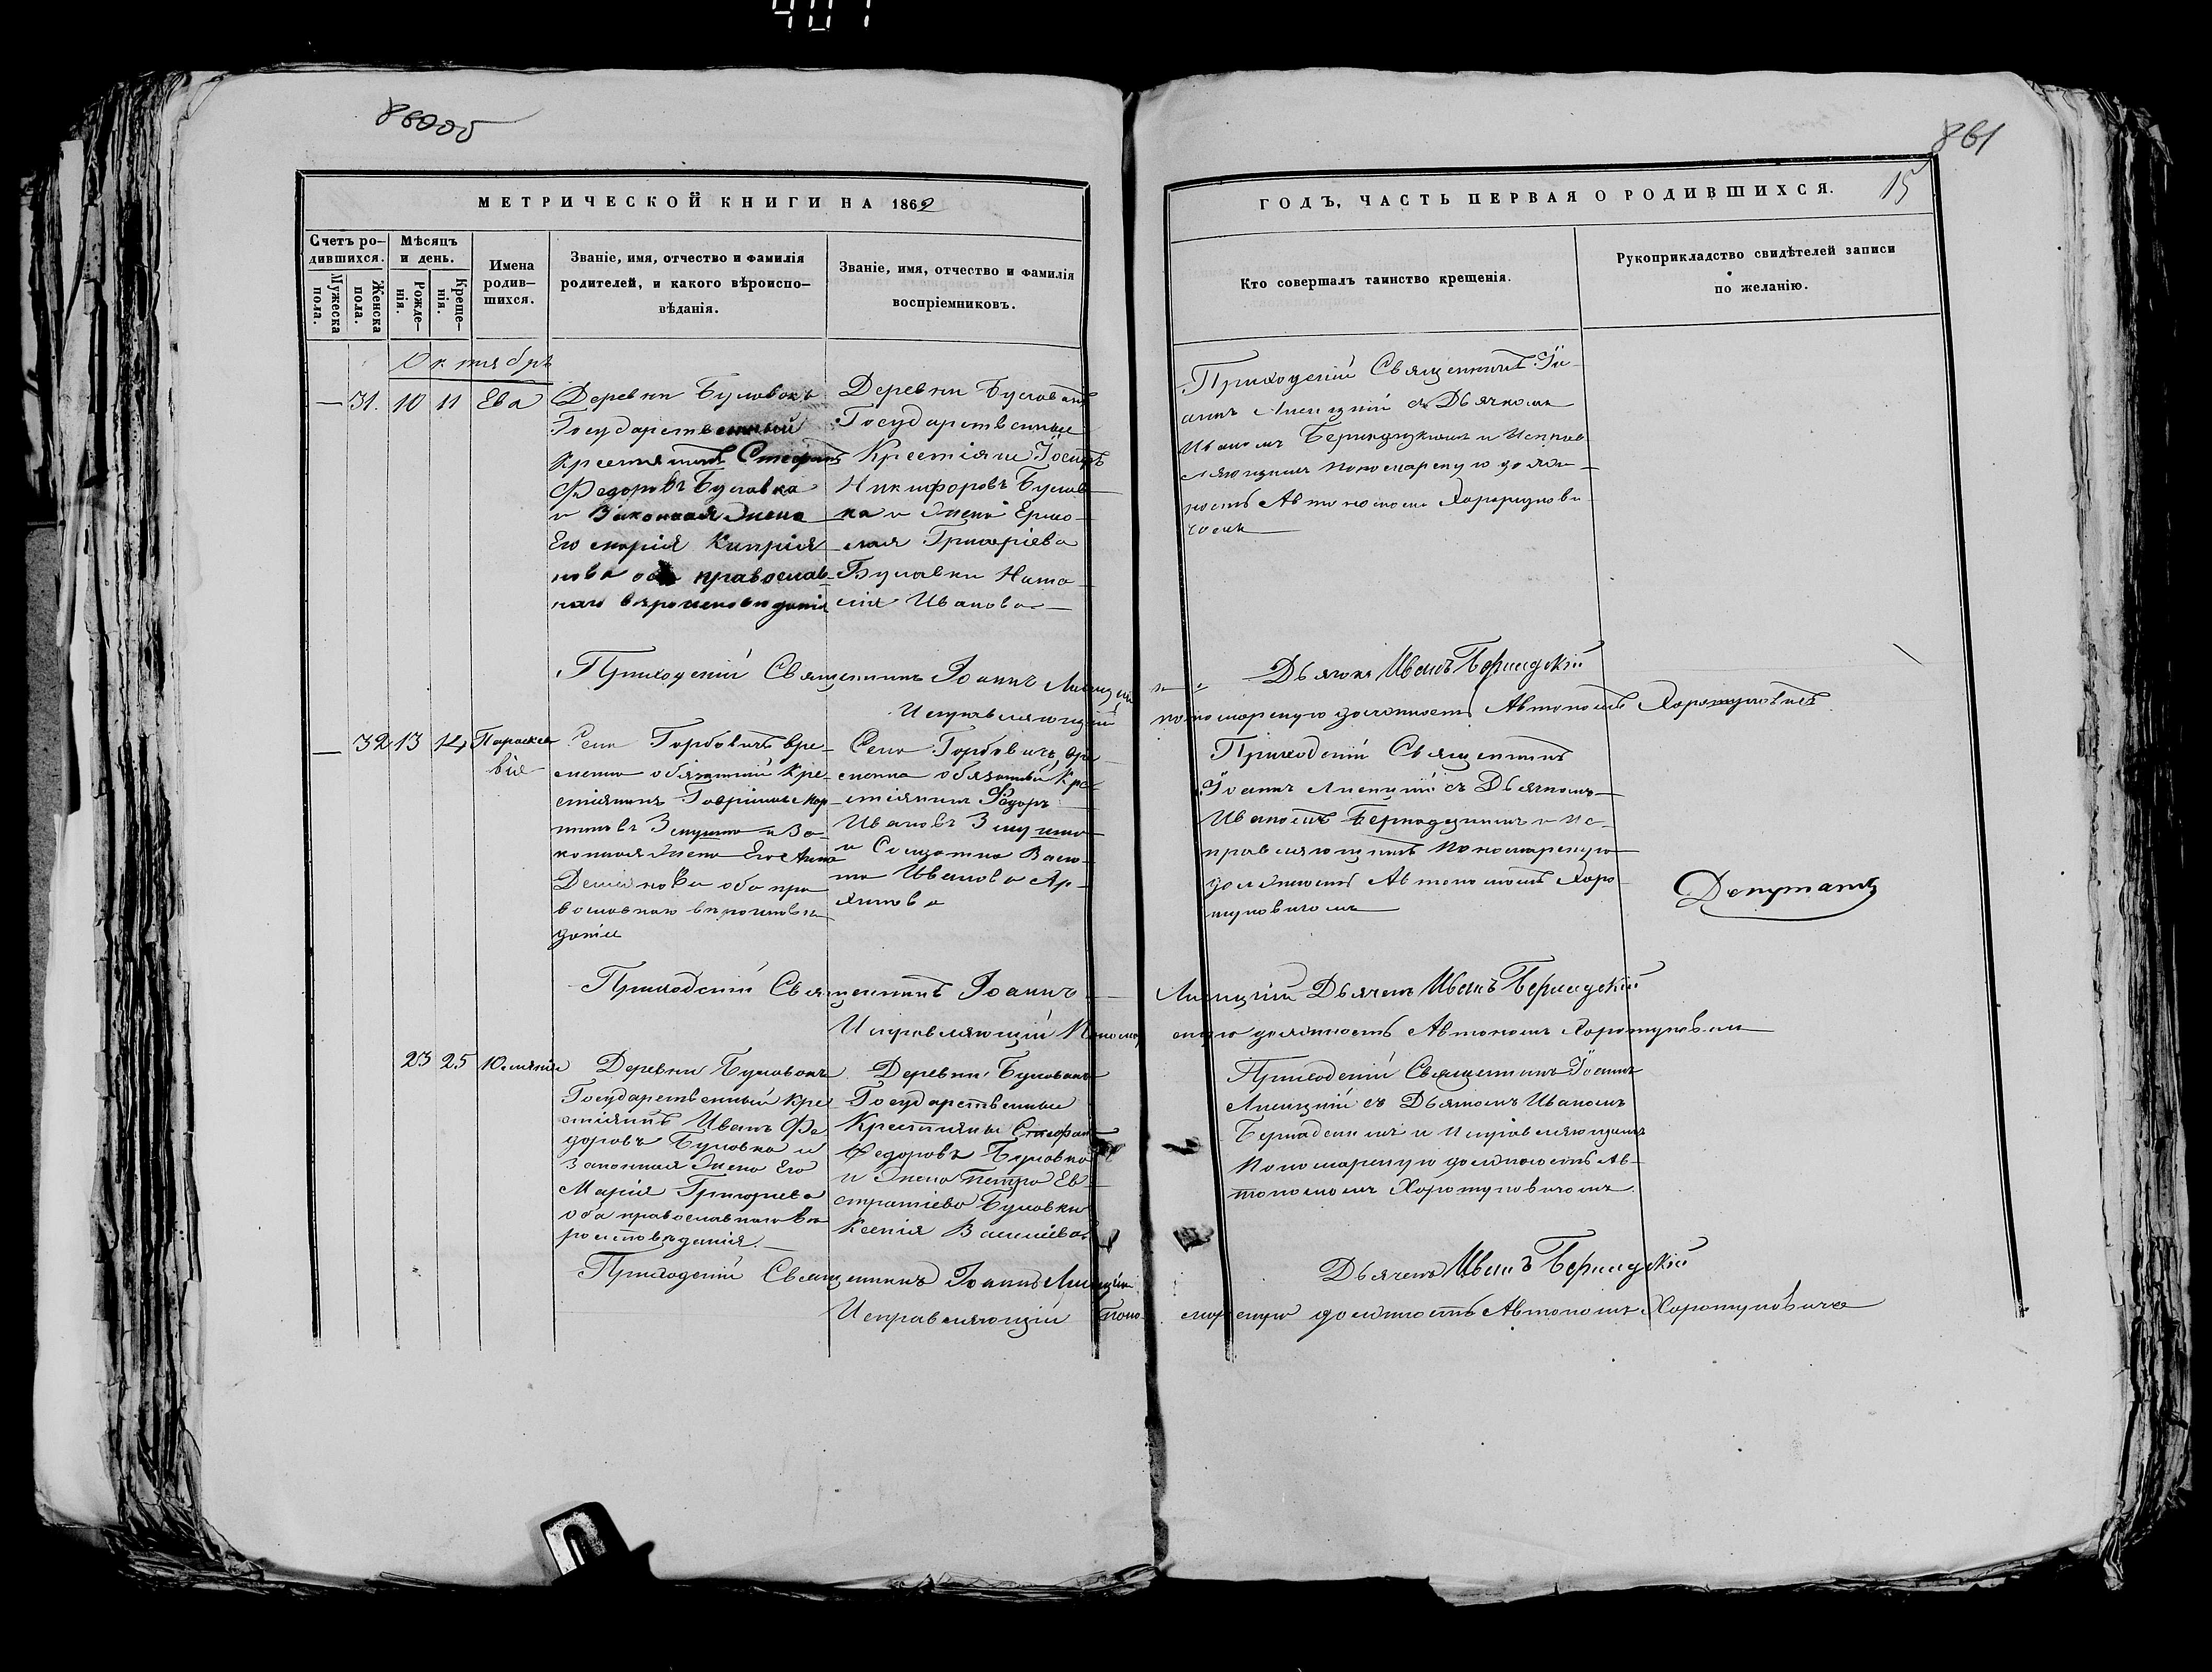 860об
861
МЕТРИЧЕСКОЙ КНИГИ НА 1862
ГОДЪ, ЧАСТЬ ПЕРВАЯ О РОДИВШИХСЯ.
15
Счетъ ро-
дившихся.
Мужеска
пола.
Женска
пола.
Мѣсяцъ
и день.
Рожде-
нія.
Креще-
нія.
Имена
родив-
шихся.
Званіе, имя, отчество и фамилія
родителей, и какого вѣроиспо-
вѣданія.
Званіе, имя, отчество и фамилія
воспріемниковъ.
Кто совершалъ таинство крещенія.
Рукоприкладство свидѣтелей записи
по желанію.
Октябрь
— 31. 10 11 Ева
Деревни Буловокъ
Государственный
Крестьянинъ Стефанъ
Федоровъ Булавка
и Законная Жена
Его Марія Кипрія-
нова оба православ-
наго вѣроисповѣданія
Деревни
Государственные
Крестіяне Іосифъ
Никифоровъ Булав-
ка и Жена Ермо-
лая Григоріева
Булавки Ната-
лія Иванова
Приходскій Священникъ Іо-
аннъ Лисицкій съ Дьячкомъ
Иваномъ и Исправ-
ляющимъ Пономарскую долж-
ность Автономомъ Хоротунови-
чомъ
Приходскій Священникъ Іоаннъ Лисицкій
Дьячекъ Иванъ
Исправляющій
пономарскую должность Автономъ Хоротуновичъ
— 32 13 14 Параске-
вія
Села Горбовичъ Вре-
менно обязанный Кре-
стіянинъ Гавріилъ Мар-
тиновъ и За-
конная Жена Его Анна
оба пра-
вославнаго вѣроисповѣ-
данія
Села Горбовичъ, Вре-
менно обязанный Кре-
стіянинъ Федоръ
Ивановъ
и Солдатка
Иванова
Приходскій Священникъ
Іоаннъ Лисицкій съ Дьячкомъ
Иваномъ и Ис-
правляющимъ Пономарскую
должность Автономомъ Хоро-
туновичомъ
Депутатъ
Приходскій Священникъ Іоаннъ
Лисицкій Дьячекъ Иванъ
Исправляющій Понома
скую должность Автономъ
23 25 Юліанія
Деревни Буловокъ
Государственный Кре-
стіянинъ Иванъ Фе-
доровъ Буловка и
Законная Жена Его
Марія Григорьева
Оба православнаго Вѣ-
роисповѣданія.
Деревни Буловокъ
Государственные
Крестіяны Стефан
Федоровъ Буловка
и Жена Петра Ев-
стратіева Буловки
Ксенія Василіева
Приходскій Священникъ Іоаннъ
Лисицкій съ Дьячкомъ Иваномъ
и Исправляющимъ
Пономарскую должность Ав-
тономомъ Хоротуновичомъ
Приходскій Священникъ Іоаннъ Лисицкій
Дьячекъ Иванъ
Исправляющій Поно-
марскую должность Автономъ Хоротуновичъ